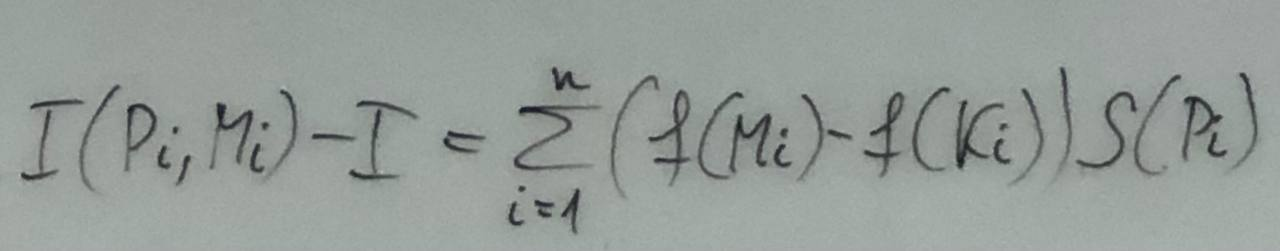 I(Pi, Mi) - I = \sum_{i=1}^{n} (f(Mi) - f(Ki)) S(Pi)